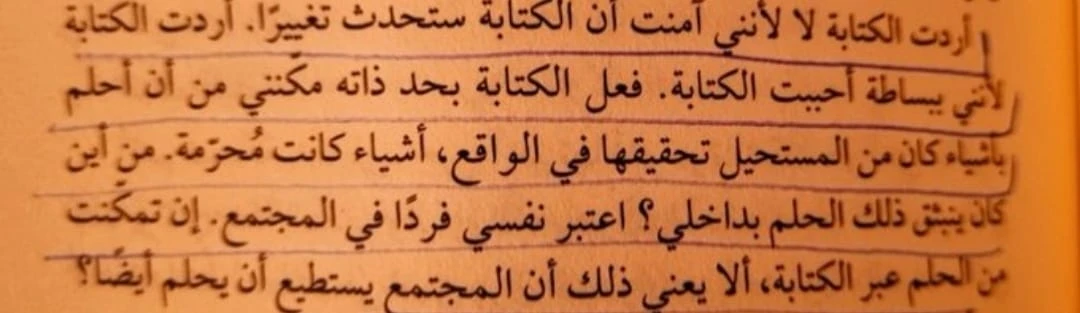 أردت الكتابة لا لأنني آمنت أن الكتابة ستحدث تغييرًا. أردت الكتابة
لأنني ببساطة أحببت الكتابة. فعل الكتابة بحد ذاته مكّنني من أن أحلم
بأشياء كان من المستحيل تحقيقها في الواقع، أشياء كانت مُحرّمة. من أين
كان ينبثق ذلك الحلم بداخلي؟ اعتبر نفسي فردًا في المجتمع. إن تمكّنت
من الحلم عبر الكتابة، ألا يعني ذلك أن المجتمع يستطيع أن يحلم أيضًا؟